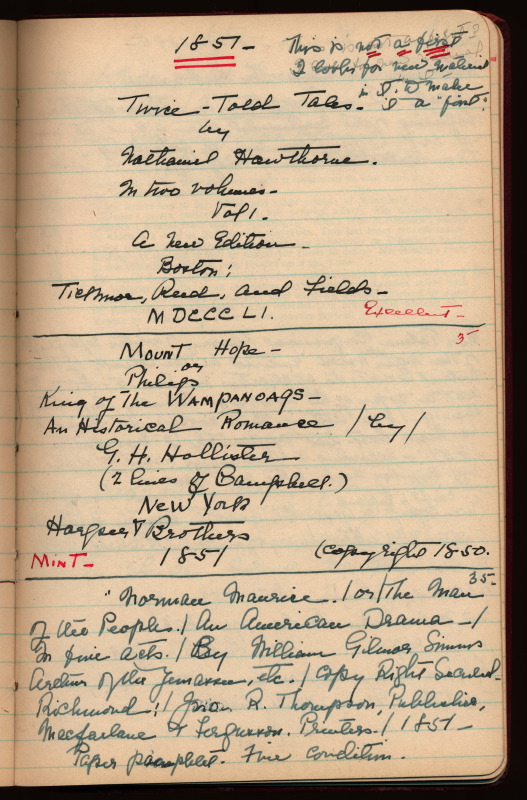 1851-
This is not a first
I looked for new material
in it. To make
it a "first."
Twice-Told Tales-
by
Nathaniel Hawthorne.
In two volumes-
Vol 1.
A New Edition-
Boston:
Ticknor, Reed, and Fields-
MDCCCLI.
Excellent-
3-
Mount Hope-
or
Philip
King of The WAMPANOAGS-
An Historical Romance / by /
G. H. Hollister
(2 lines of Campbell.)
New York
Harper & Brothers
MINT- 1851 (copyright 1850.
35-
"Norman Maurice. / or / The Man
of the People. / An American Drama- /
In five acts. / By William Gilmore Simms
Author of the Yemassee, etc. / Copy Right Secured-
Richmond: / Jno. R. Thompson, Publisher,
Macfarlane & Fergusson. Printers. / 1851-
Paper pamphlet. Fine condition.